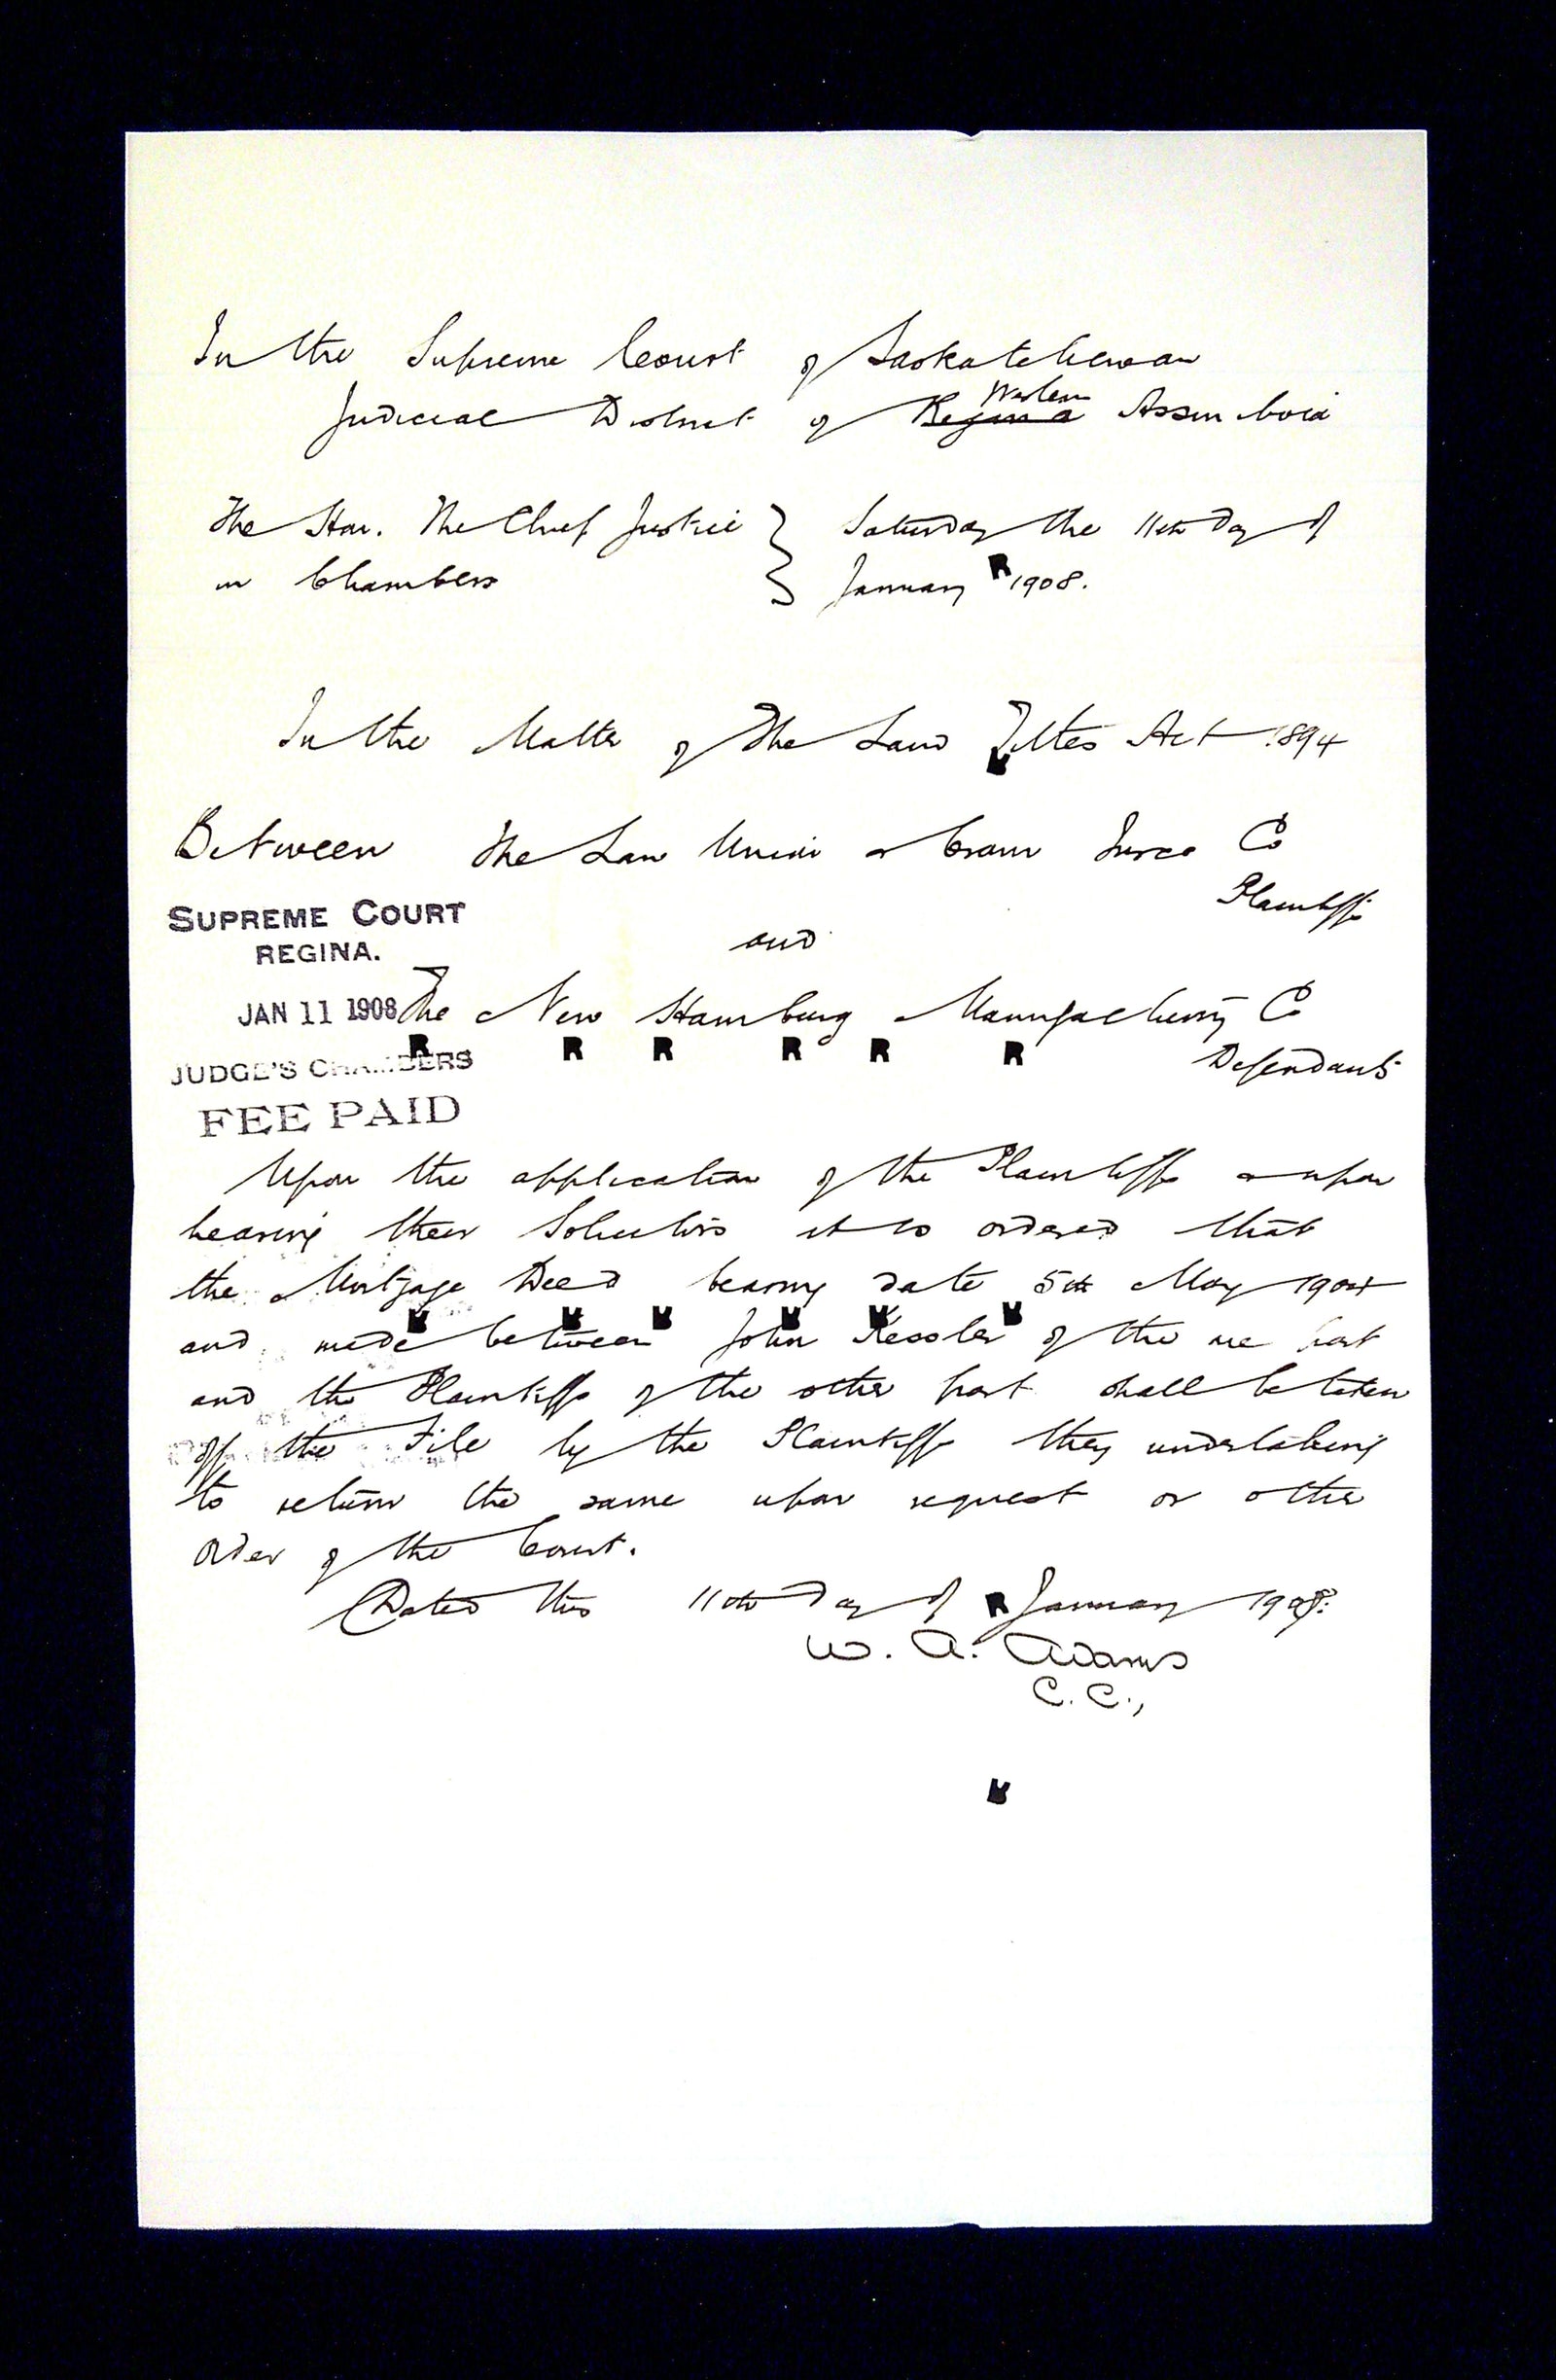 In the Supreme Court of Saskatchewan
Western
Judicial District of Regina Assiniboia
The Hon. The Chief Justice } Saturday the 11th day of
in Chambers } January 1908.
In the Matter of The Land Titles Act 1894
Between The Law Union & Crown Insce Co
Plaintiffs
and
SUPREME COURT
REGINA.
JAN 11 1908
JUDGE'S CHAMBERS
FEE PAID
The New Hamburg Manufacturing Co
Defendants
Upon the application of the Plaintiffs & upon
hearing their Solicitors it is ordered that
the Mortgage Deed bearing date 5th May 1904
and made between John Kessler of the one part
and the Plaintiffs of the other part shall be taken
off the File by the Plaintiffs they undertaking
to return the same upon request or other
order of the Court.
Dated this 11th day of January 1908.
W. A. Adams
C. C.,